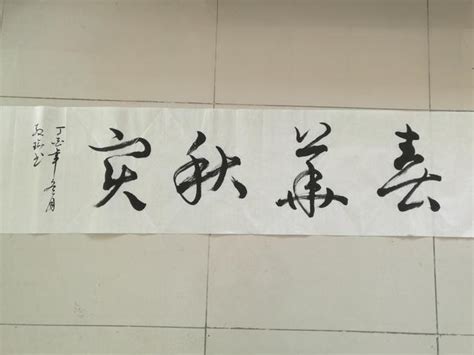 春華秋實
丁酉年冬月
书